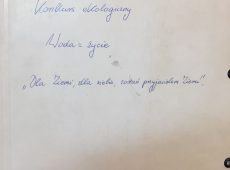 Konkurs ekologiczny
Woda = życie
„Dla Ziemi, dla siebie, zostań przyjacielem Ziemi".